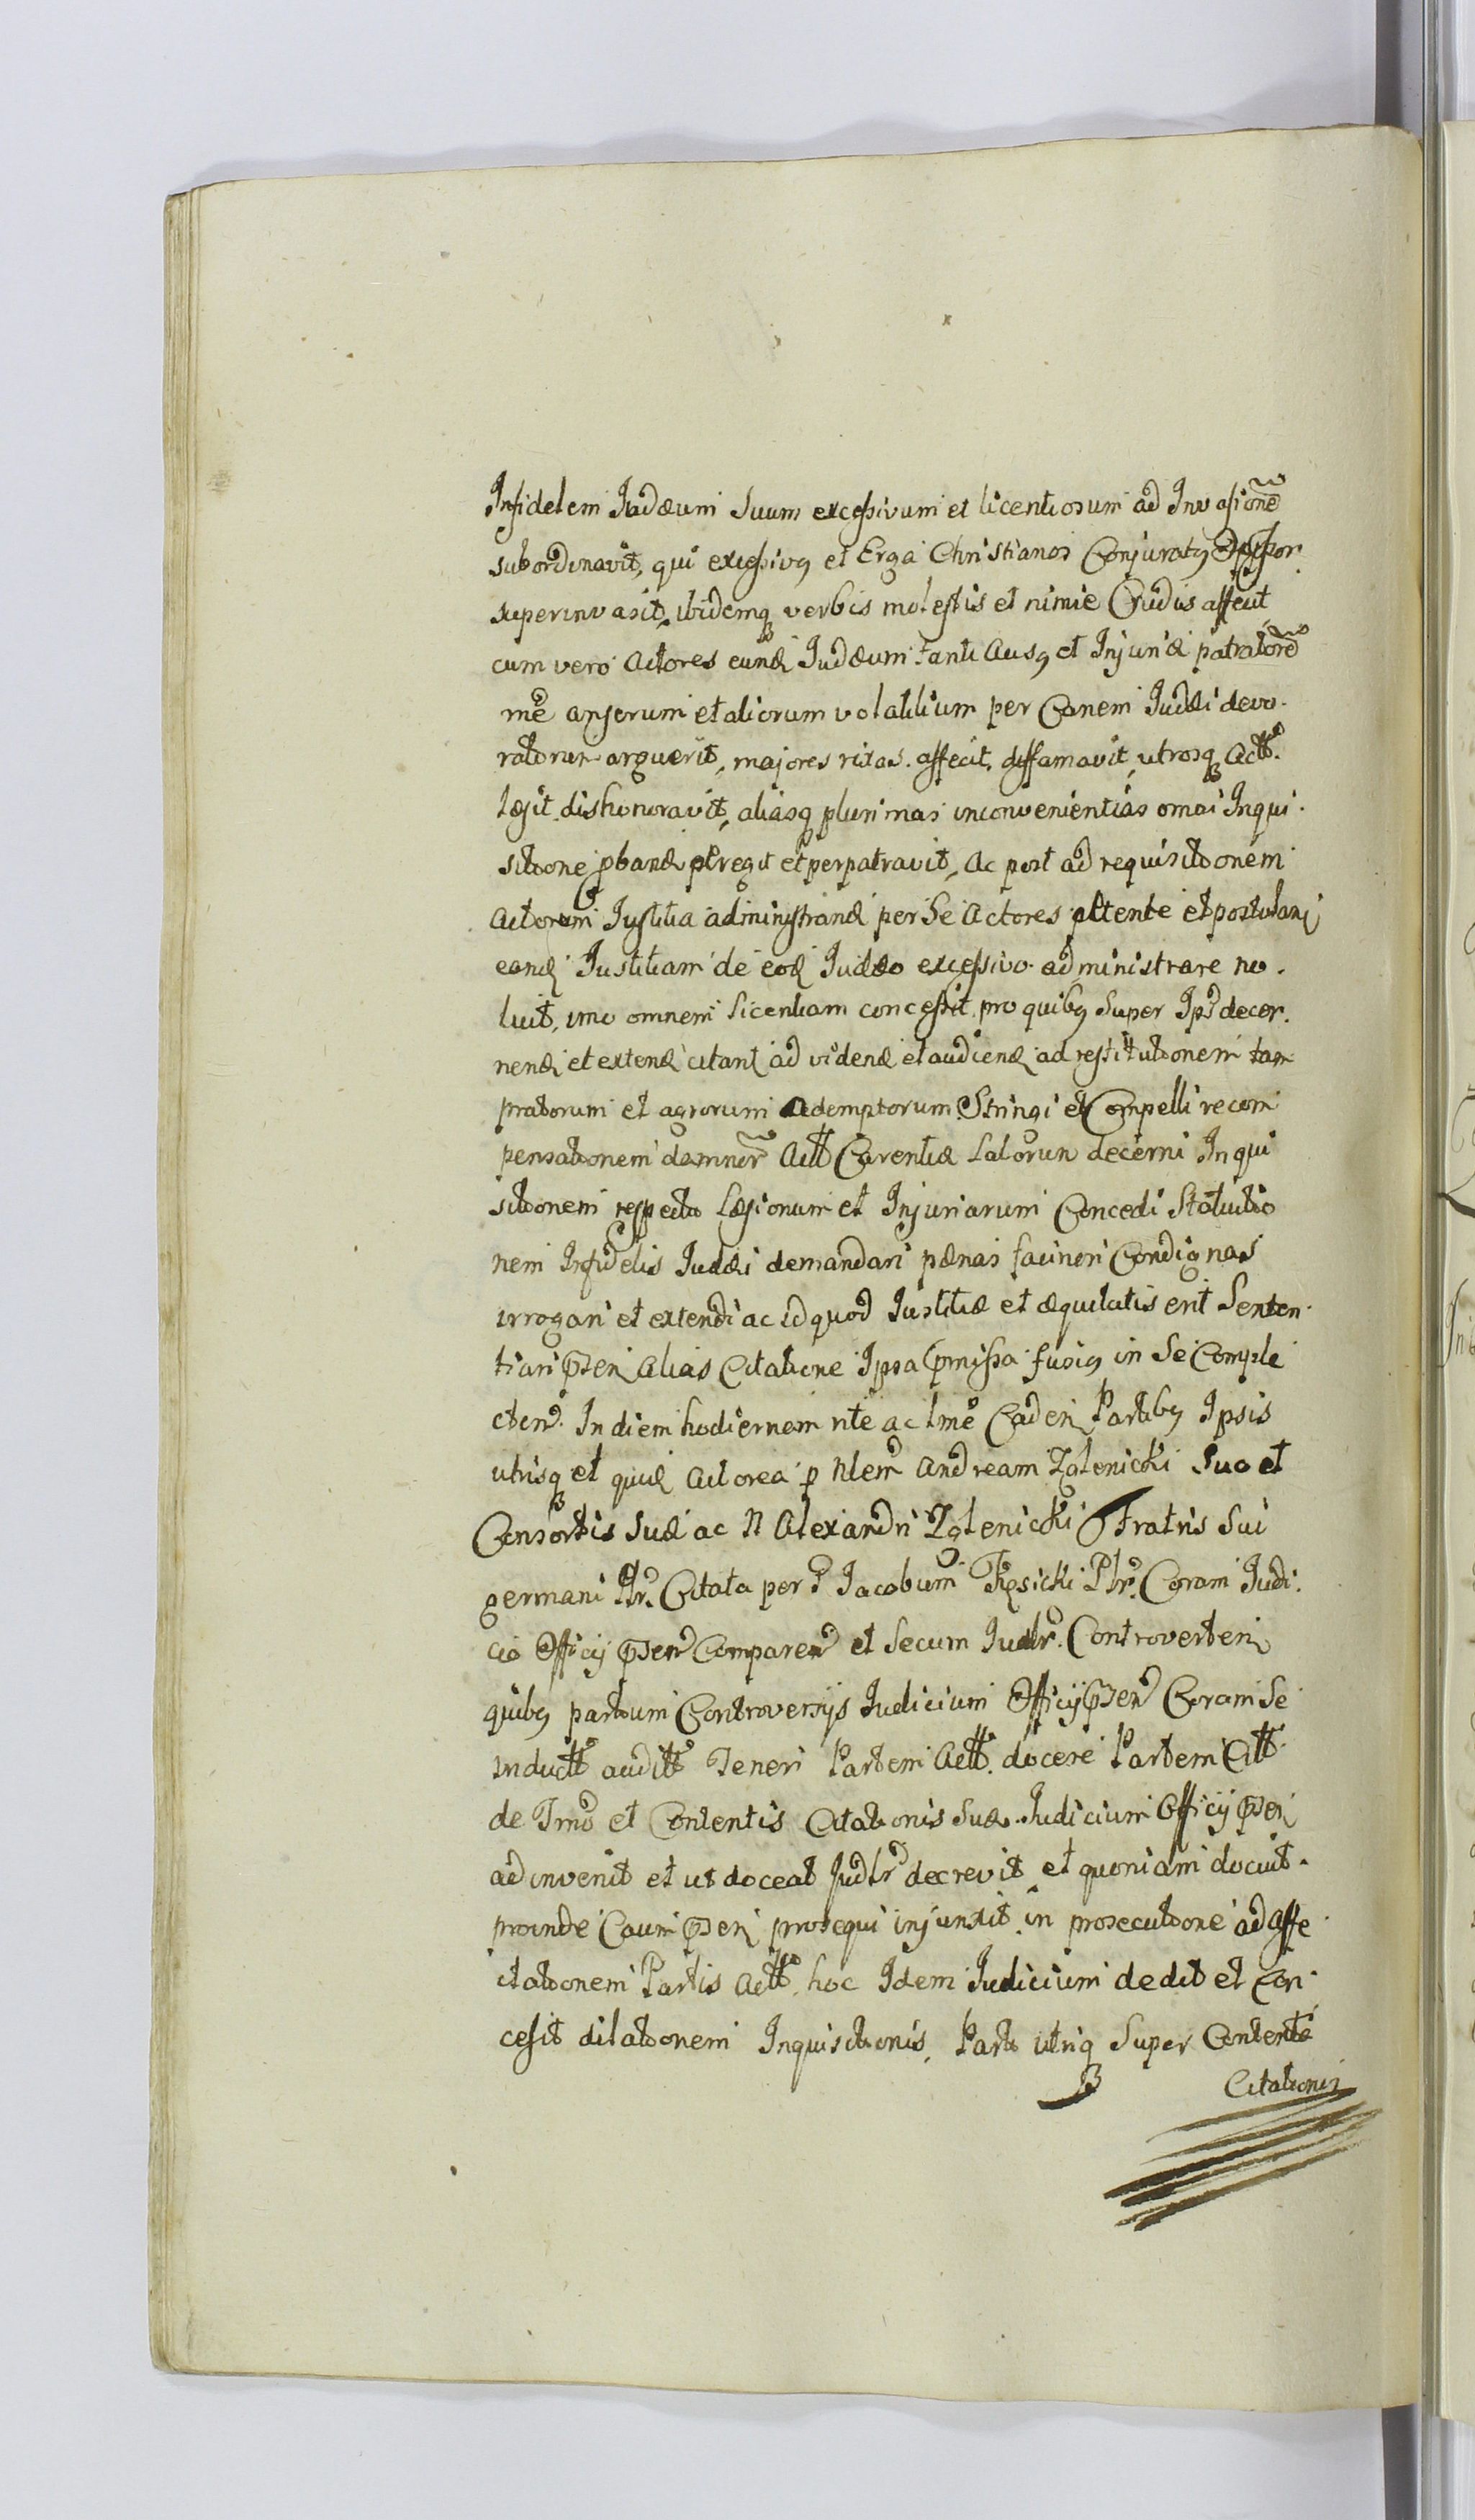 Infidelem Judæum Suum excessivum et licentiosum ad Invasionē
subordinavit, qui excessivg et Erga Christianos Conjuratg Oppssor
superinvasit, ibidemq verbis molestis et nimie Crudis affecit
cum vero Actores eund Judæum Tanti Ausg et Injuriæ patratorē
me anserum et aliorum volatilium per Canem Judæi devo-
ratorum arguerit, majores rixas affecit, diffamavit, utrosq Actt.
læsit dishonoravit, aliasq plurimas inconvenientias omni Inqui-
sitione pband peregit et perpatravit, Ac post ad requisitionem
Actorum Justitia administrand per Se Actores pltente et postulan
eand Justitiam de eod Judæo excessivo administrare no-
luit, imo omnem licentiam concessit, pro quibg Super Ips decer-
nend et extend citant ad vidend et audiend ad restitutionem tam
pratorum et agrorum Ademptorum Stringi et Compelli recom
pensationem damnor Actt Carentiæ Latorum decerni Inqui
sitionem respectu Læsionum et Injuriarum Concedi Statuitio
nem Infidelis Judæi demandari pænas facinori Condignas
irrogari et extendi ac id quod Justitiæ et æquitatis erit Senten-
tiari psen Alias Citatione Ipsa pmissa fusig in Se Comple
cten. In diem hodiernam rite ac lme Caden Partibg Ipsis
utrisq et quid Actorea p Nlem Andream Zolenicki Suo et
Consortis Suæ ac N Alexandri Zolenicki Fratris Sui
germani Nr. Citata per Jacobum Kęsicki Plr. Coram Judi-
cio Officij psen Comparen et Secum Judlr. Controverten
quibg partium Controversijs Judicium Officij psen Coram Se
inductt auditt Teneri Partem Actt. docere Partem Citt
de Tmo et Contentis Citationis Suæ Judicium Officij psen
adinvenit et ut doceat Judlr decrevit et quoniam docuit
proinde Caum psen prosequi injunxit, in prosecutione ad affe
ctationem Partis Actt. hoc Idem Judicium dedit et Con-
cessit dilationem Inquisitionis, Parti utriq Super Contenta
Citationis